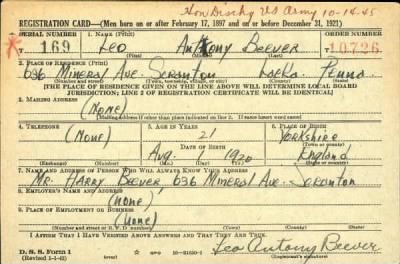 Hon Disch'g US Army 10-14-45
REGISTRATION CARD—(Men born on or after February 17, 1897 and on or before December 31, 1921)
SERIAL NUMBER 1. NAME (Print) ORDER NUMBER
T 169 Leo Antony Beever 10726
(First) (Middle) (Last)
2. PLACE OF RESIDENCE (Print)
636 Mineral Ave. Scranton Lacka. Penna.
(Number and street) (Town, township, village, or city) (County) (State)
[THE PLACE OF RESIDENCE GIVEN ON THE LINE ABOVE WILL DETERMINE LOCAL BOARD
JURISDICTION; LINE 2 OF REGISTRATION CERTIFICATE WILL BE IDENTICAL]
3. MAILING ADDRESS
(None)
[Mailing address if other than place indicated on line 2. If same insert word same]
4. TELEPHONE 5. AGE IN YEARS 6. PLACE OF BIRTH
(None) 21 Yorkshire
DATE OF BIRTH (Town or county)
Aug. 1920 England
(Exchange) (Number) (Mo.) (Day) (Yr.) (State or country)
7. NAME AND ADDRESS OF PERSON WHO WILL ALWAYS KNOW YOUR ADDRESS
Mr. Harry Beever 636 Mineral Ave. Scranton
8. EMPLOYER'S NAME AND ADDRESS
(None)
9. PLACE OF EMPLOYMENT OR BUSINESS
(None)
(Number and street or R. F. D. number) (Town) (County) (State)
I AFFIRM THAT I HAVE VERIFIED ABOVE ANSWERS AND THAT THEY ARE TRUE.
D. S. S. Form 1
Leo Antony Beever
(Registrant's signature)